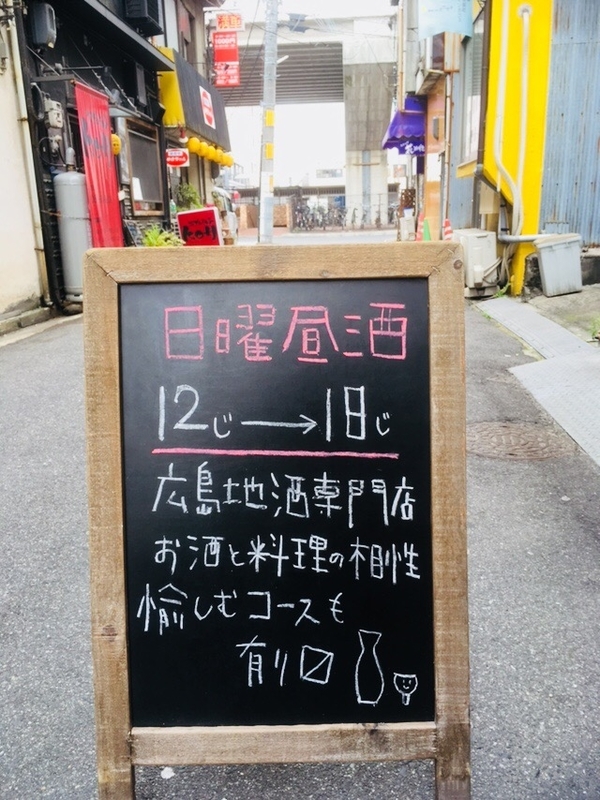 日曜昼酒
12じ→18じ
広島地酒専門店
お酒と料理の相性
愉しむコースも
有り〼